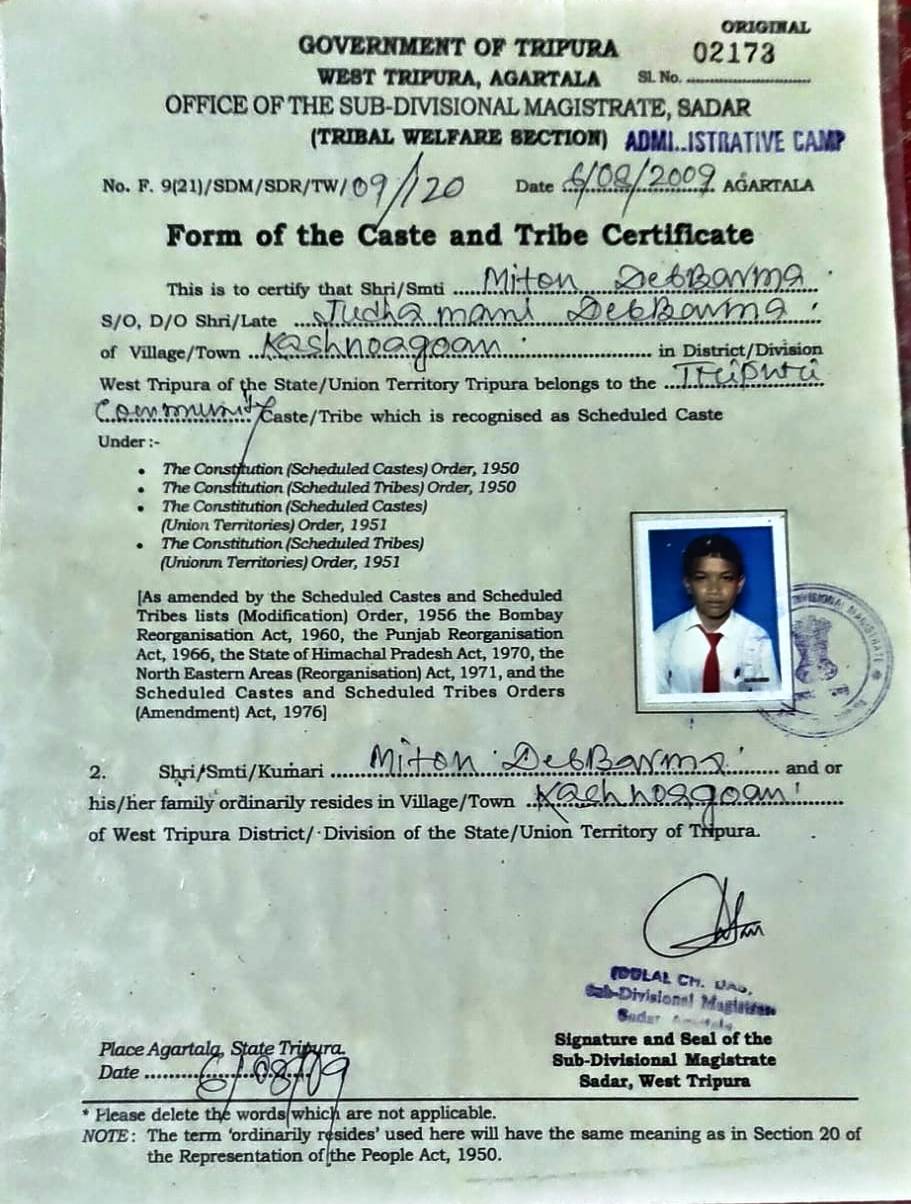 ORIGINAL
GOVERNMENT OF TRIPURA 02173
WEST TRIPURA, AGARTALA Sl. No. ..............................
OFFICE OF THE SUB-DIVISIONAL MAGISTRATE, SADAR
(TRIBAL WELFARE SECTION) ADMI..ISTRATIVE CAMP
No. F. 9(21)/SDM/SDR/TW/09/120 Date 6/08/2009 AGARTALA
Form of the Caste and Tribe Certificate
This is to certify that Shri/Smti ....Miton DebBarma
S/O, D/O Shri/Late ...Judhamani DebBarma
of Village/Town ..Kashnoagoan.................. in District/Division
West Tripura of the State/Union Territory Tripura belongs to the ..Tripuri
Community Caste/Tribe which is recognised as Scheduled Caste
Under :-
• The Constitution (Scheduled Castes) Order, 1950
• The Constitution (Scheduled Tribes) Order, 1950
• The Constitution (Scheduled Castes)
(Union Territories) Order, 1951
• The Constitution (Scheduled Tribes)
(Unionm Territories) Order, 1951
[As amended by the Scheduled Castes and Scheduled
Tribes lists (Modification) Order, 1956 the Bombay
Reorganisation Act, 1960, the Punjab Reorganisation
Act, 1966, the State of Himachal Pradesh Act, 1970, and the
North Eastern Areas (Reorganisation) Act, 1971, and the
Scheduled Castes and Scheduled Tribes Orders
(Amendment) Act, 1976]
2. Shri/Smti/Kumari .....Miton DebBarma....... and or
his/her family ordinarily resides in Village/Town ..Kashnoagoan.......
of West Tripura District/ Division of the State/Union Territory of Tripura.
CH. DAS,
Sub-Divisional Magistrate
Sadar
Signature and Seal of the
Sub-Divisional Magistrate
Sadar, West Tripura
Place Agartala, State Tripura
Date .........6/08/09
* Please delete the words which are not applicable.
NOTE : The term 'ordinarily resides' used here will have the same meaning as in Section 20 of
the Representation of the People Act, 1950.